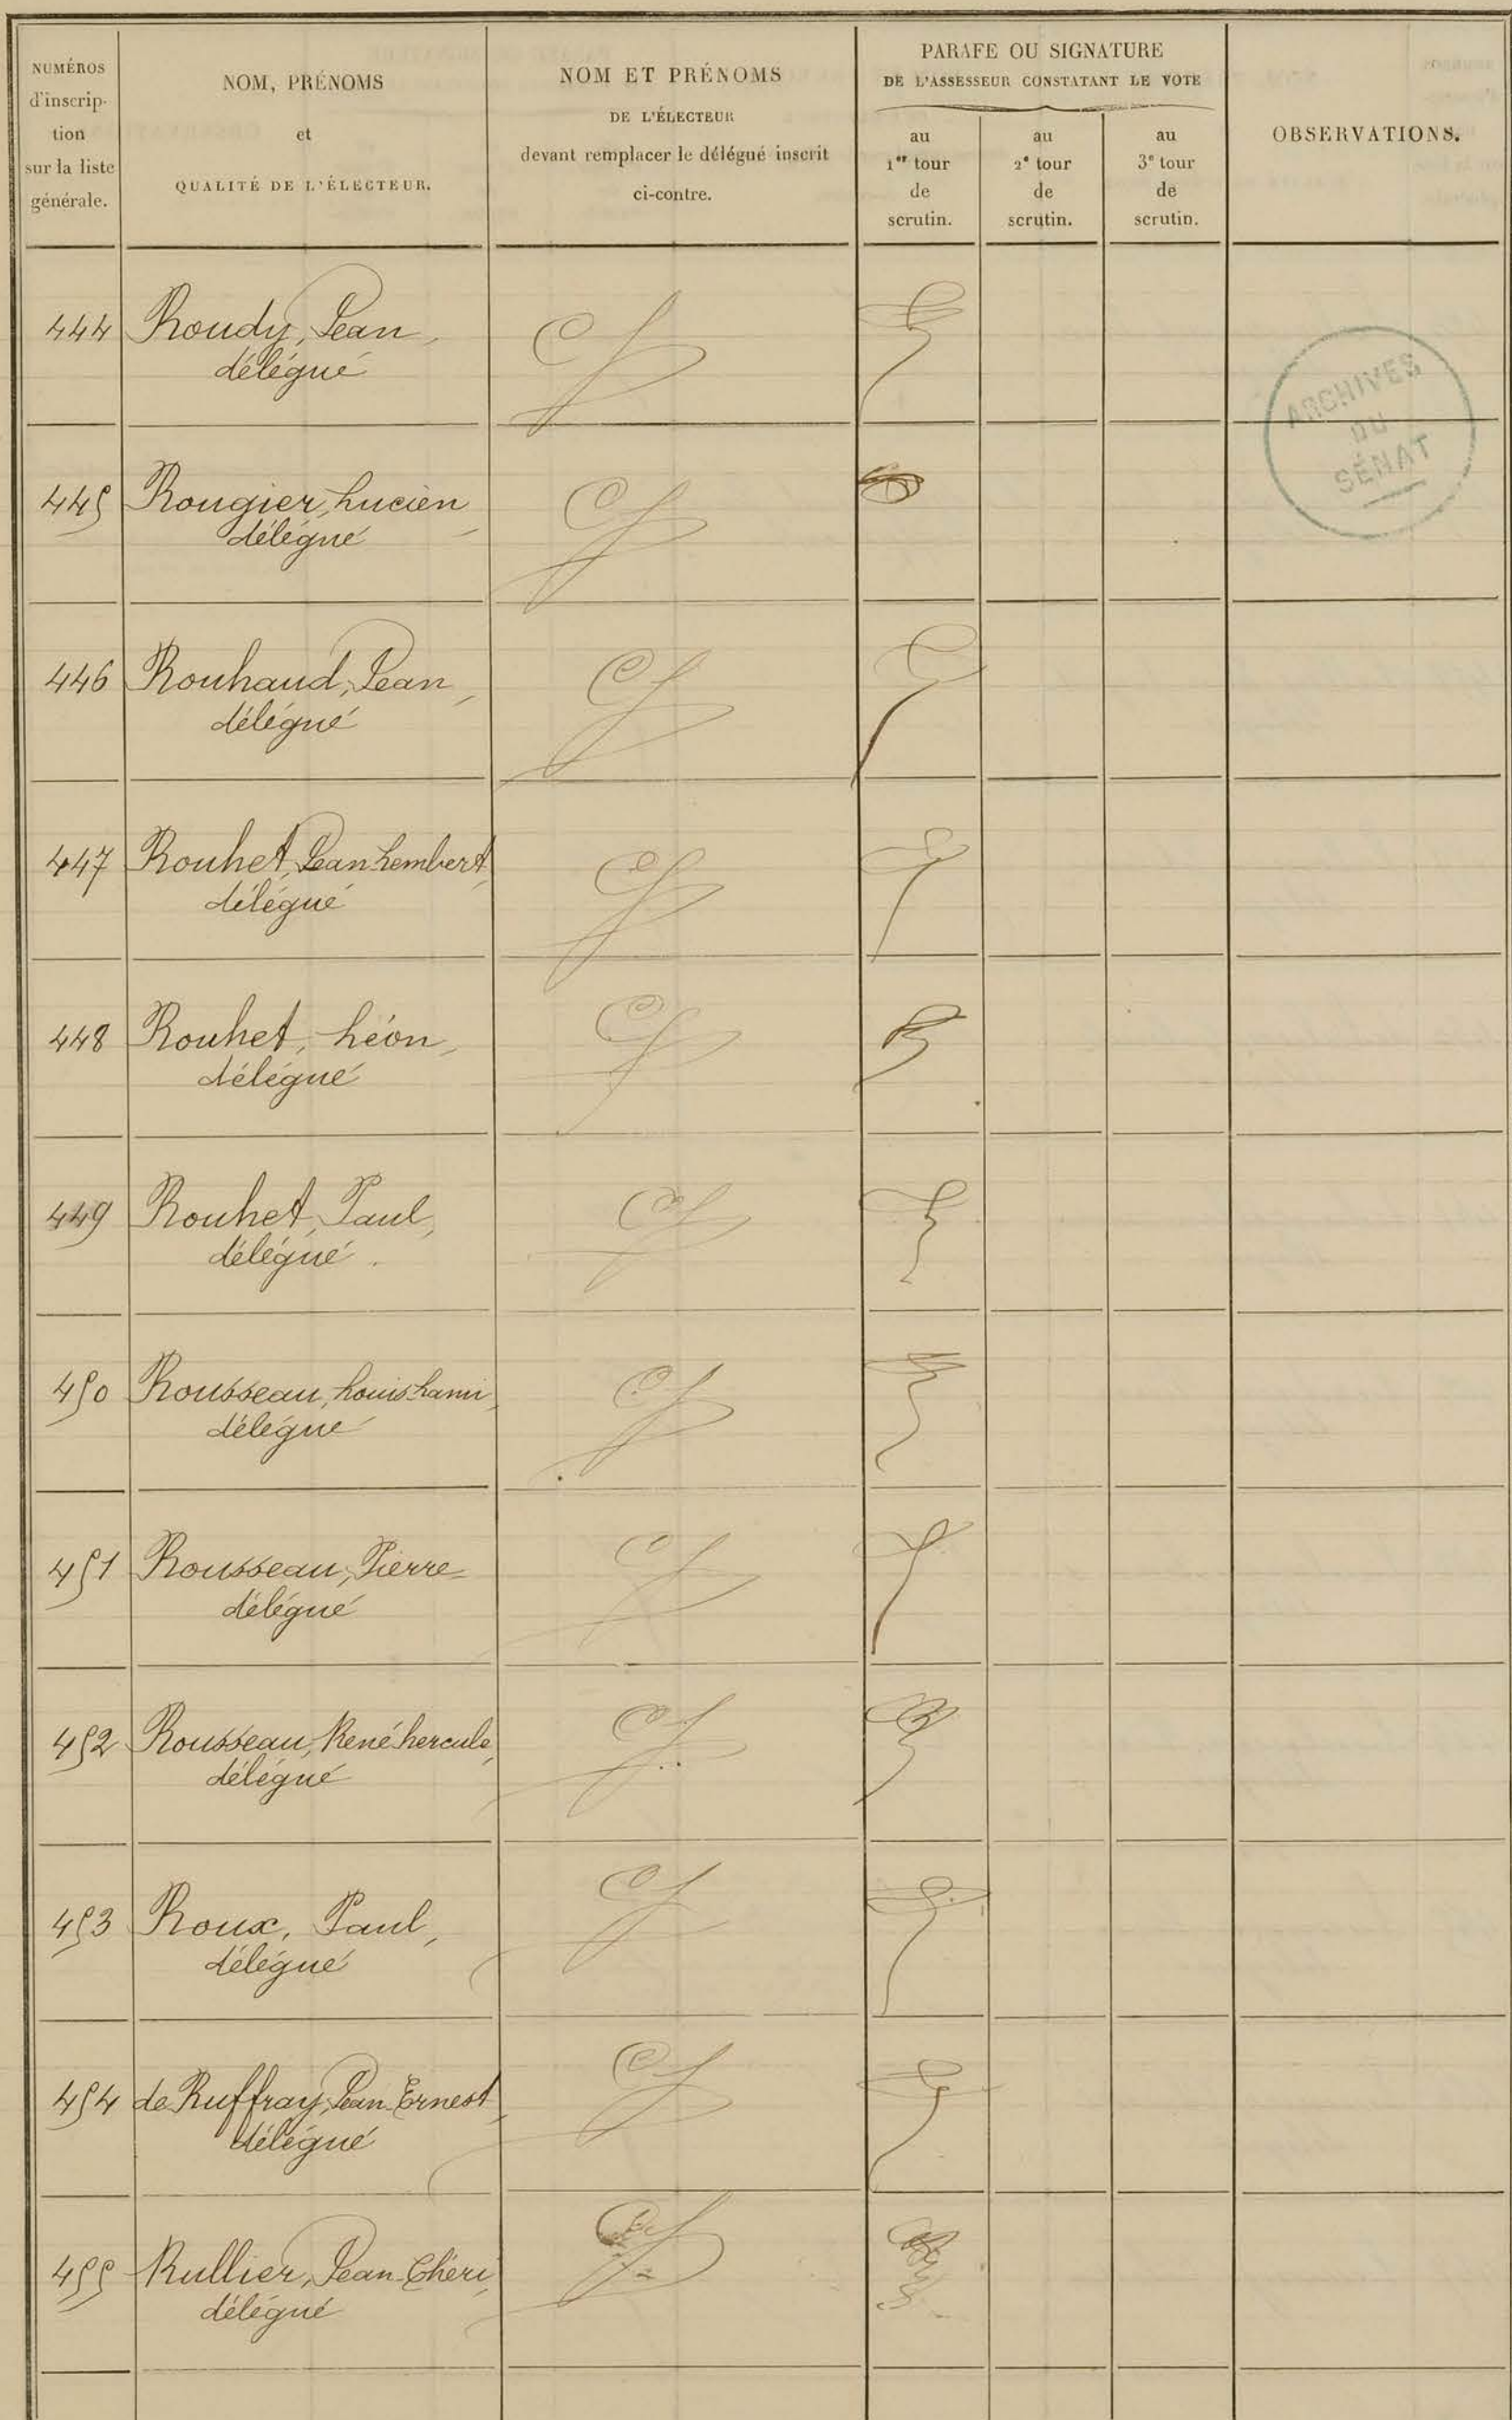 NUMÉROS
d'inscrip-
tion
sur la liste
générale.
NOM, PRÉNOMS
et
QUALITÉ DE L'ÉLECTEUR.
NOM ET PRÉNOMS
DE L'ÉLECTEUR
devant remplacer le délégué inscrit
ci-contre.
PARAFE OU SIGNATURE
DE L'ASSESSEUR CONSTATANT LE VOTE
au
1er tour
de
scrutin.
au
2e tour
de
scrutin.
au
3e tour
de
scrutin.
OBSERVATIONS.
444 Roudy, Jean,
délégué
ARCHIVES
DU
SÉNAT
445 Rougier, Lucien,
délégué
446 Rouhaud, Jean,
délégué
447 Rouhet, Jean Lembert,
délégué
448 Rouhet, Léon,
délégué
449 Rouhet, Paul,
délégué
450 Rousseau, Louis Lami,
délégué
451 Rousseau, Pierre
délégué
452 Rousseau, René hercule,
délégué
453 Roux, Paul,
délégué
454 de Ruffray, Jean Ernest,
délégué
455 Rullier, Jean Chéri,
délégué